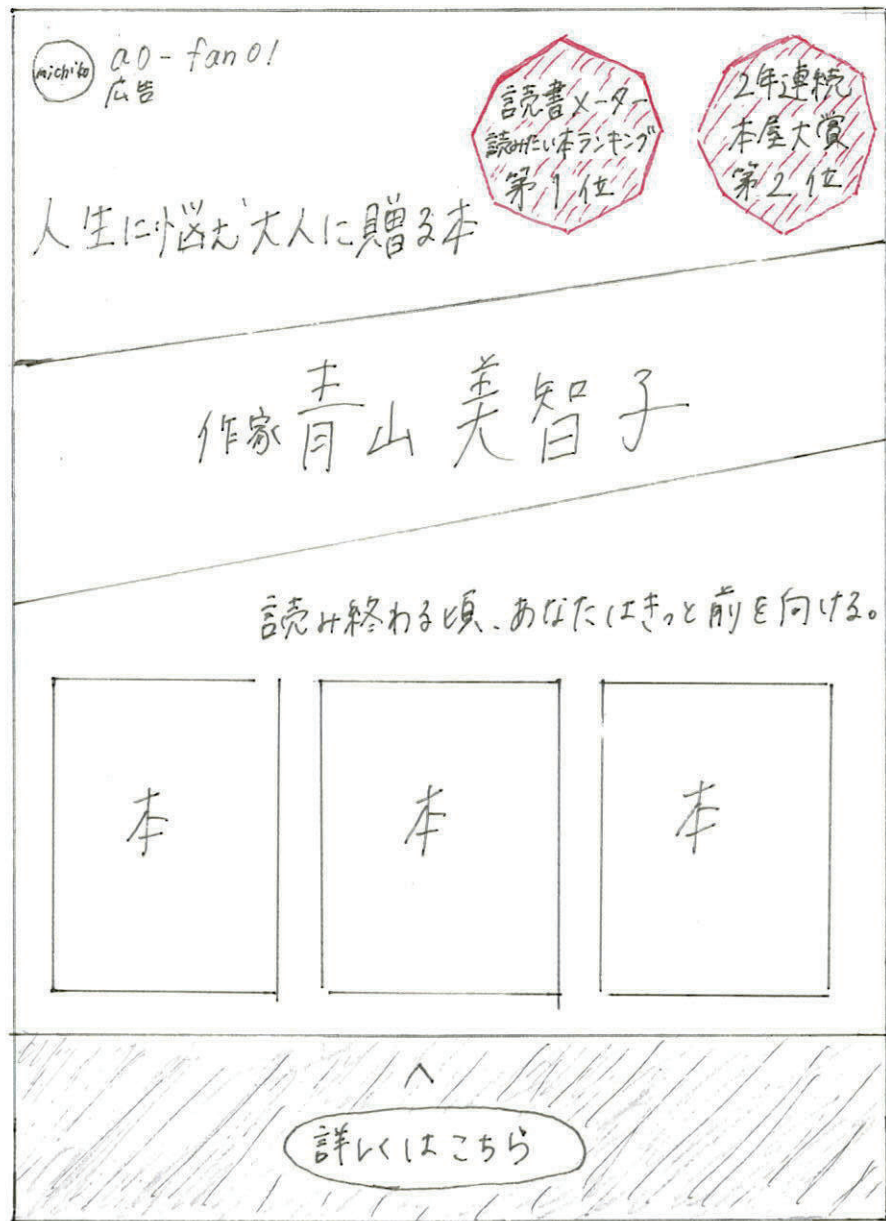 michiko
ao-fan01
広告
読書メーター
読みたい本ランキング
第1位
2年連続
本屋大賞
第2位
人生に悩む大人に贈る本
作家 青山美智子
読み終わる頃、あなたはきっと前を向ける。
本
本
本
詳しくはこちら